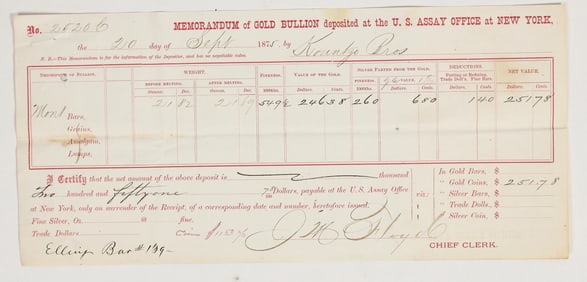 No. 25206 MEMORANDUM of GOLD BULLION deposited at the U. S. ASSAY OFFICE at NEW YORK,
the 20 day of Sept 1875 by Kountze Bros
N. B.—This Memorandum is for the information of the Depositor, and has no negotiable value.
DESCRIPTION OF BULLION. WEIGHT. FINENESS. VALUE OF THE GOLD. SILVER PARTED FROM THE GOLD. DEDUCTIONS. NET VALUE.
BEFORE MELTING. AFTER MELTING. Parting or Refining, Trade Doll's, Fine Bars.
Ounces. Dec. Ounces. Dec. 1000ths. Dollars. Cents. FINENESS. 1000ths. Dollars. Cents. Dollars. Cents. Dollars. Cents.
Mont Bars. 21 82 21 69 549½ 246 38 260 6 80 1 40 251 78
Grains.
Amalgam
Lumps.
I Certify that the net amount of the above deposit is thousand
Two hundred and fifty one 78/100 Dollars, payable at the U. S. Assay Office
at New York, only on surrender of the Receipt, of a corresponding date and number, heretofore issued.
viz:
In Gold Bars, $
" Gold Coins, $ 251.78
" Silver Bars, $
" Trade Dolls. $
" Silver Coin, $
Fine Silver, Oz. @ fine.
Trade Dollars Coin
CHIEF CLERK.
Bar # 149